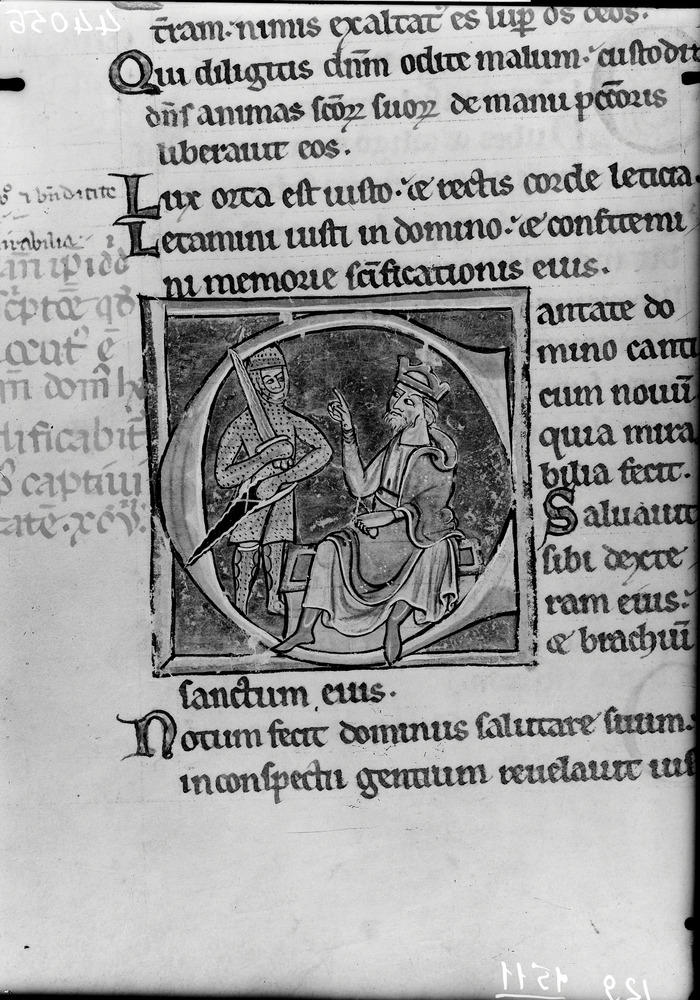 t̄ram·nimis exaltat᷒ es sup̄ os deos·
Qui diligitis dn̄m odite malum·custodit
dn̄s animas sc̄oꝝ suoꝝ de manu pcc̄oris
liberauit eos·
Lux orta est iusto·⁊ rectis corde leticia·
Letamini iusti in domino·⁊ confitemi
ni memorie sc̄ificationis eius·
antate do
mino canti
cum nouū
quia mira
bilia fecit·
Saluauit
sibi dexte
ram eius·
⁊ brachiū
sanctum eius·
Notum fecit dominus salutare suum·
in conspectu gentium reuelauit ius
44056
1511
129